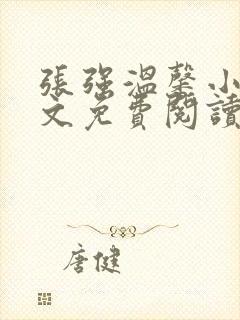 張強溫馨小
文免費閱讀
唐健